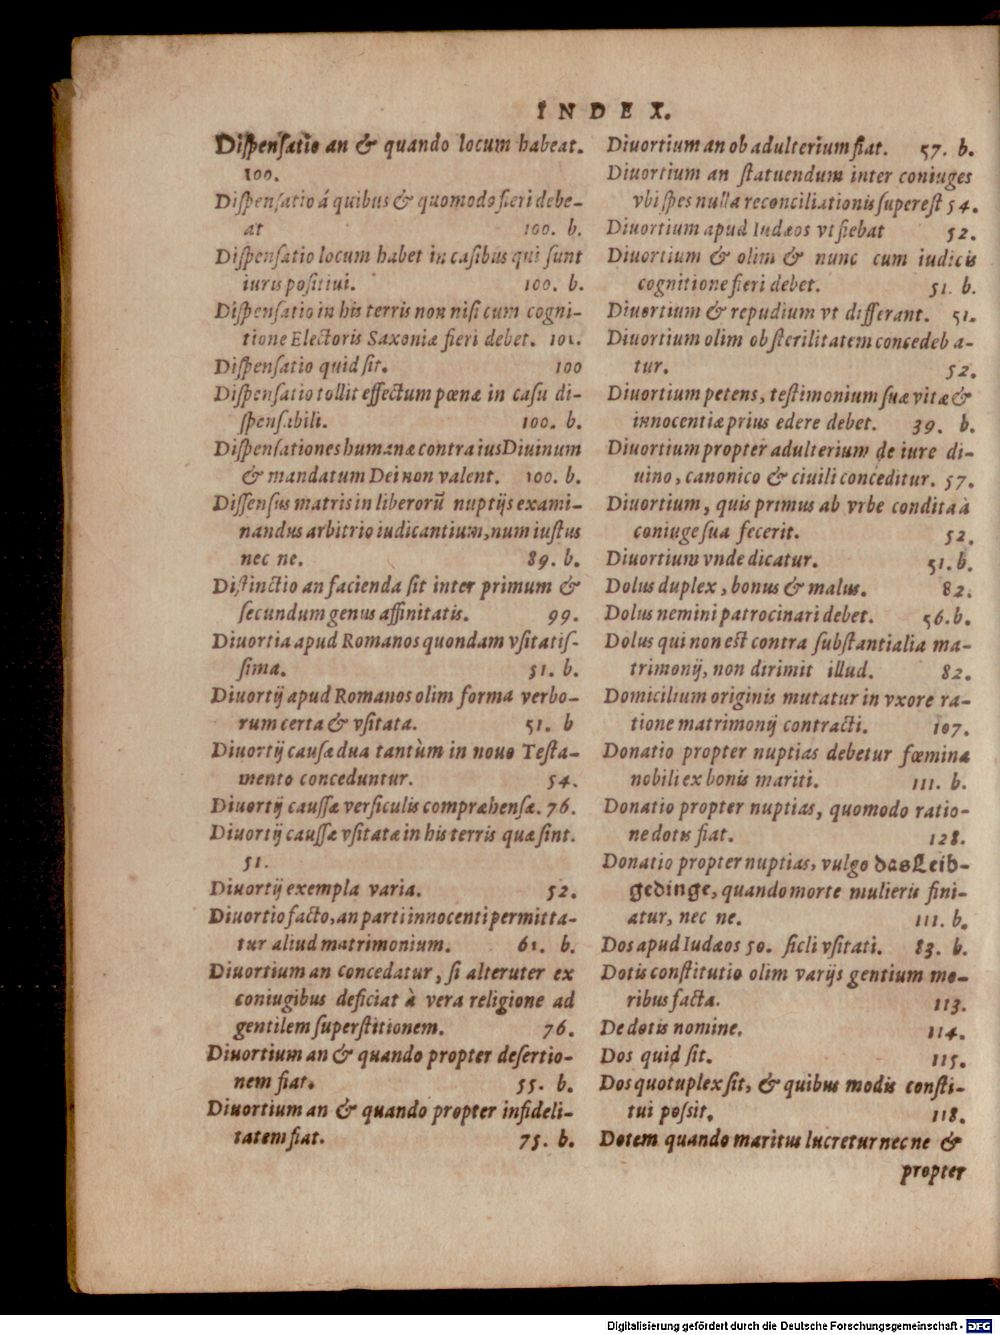 INDEX.
Diſpenſatio an & quando locum habeat.
100.
Diſpenſatio á quibus & quomodo fieri debe-
at 100. b.
Diſpenſatio locum habet in caſibus qui ſunt
iuris poſitiui. 100. b.
Diſpenſatio in his terris non niſi cum cogni-
tione Electoris Saxoniæ fieri debet. 101.
Diſpenſatio quid ſit. 100
Diſpenſatio tollit effectum pœnæ in caſu di-
ſpenſabili. 100. b.
Diſpenſationes humanæ contra ius Diuinum
& mandatum Dei non valent. 100. b.
Diſſenſus matris in liberorū nuptijs exami-
nandus arbitrio iudicantium, num iuſtus
nec ne. 89. b.
Diſtinctio an facienda ſit inter primum &
ſecundum genus affinitatis. 99.
Diuortia apud Romanos quondam vſitatiſ-
ſima. 51. b.
Diuortij apud Romanos olim forma verbo-
rum certa & vſitata. 51. b
Diuortij cauſæ duæ tantùm in nouo Teſta-
mento conceduntur. 54.
Diuortij cauſſæ verſiculis compræhenſæ. 76.
Diuortij cauſſæ vſitatæ in his terris quæ ſint.
51.
Diuortij exempla varia. 52.
Diuortio facto, an parti innocenti permitta-
tur aliud matrimonium. 61. b.
Diuortium an concedatur, ſi alteruter ex
coniugibus deficiat à vera religione ad
gentilem ſuperſtitionem. 76.
Diuortium an & quando propter deſertio-
nem fiat. 55. b.
Diuortium an & quando propter infideli-
tatem fiat. 75. b.
Diuortium an ob adulterium fiat. 57. b.
Diuortium an ſtatuendum inter coniuges
vbi ſpes nulla reconciliationis ſupereſt 54.
Diuortium apud Iudæos vt fiebat 52.
Diuortium & olim & nunc cum iudicis
cognitione fieri debet. 51. b.
Diuortium & repudium vt differant. 51.
Diuortium olim ob ſterilitatem concedeba-
tur. 52.
Diuortium petens, teſtimonium ſuæ vitæ &
innocentiæ prius edere debet. 39. b.
Diuortium propter adulterium de iure di-
uino, canonico & ciuili conceditur. 57.
Diuortium, quis primus ab vrbe condita à
coniuge ſua fecerit. 52.
Diuortium vnde dicatur. 51. b.
Dolus duplex, bonus & malus. 82.
Dolus nemini patrocinari debet. 56. b.
Dolus qui non eſt contra ſubſtantialia ma-
trimonij, non dirimit illud. 82.
Domicilium originis mutatur in vxore ra-
tione matrimonij contracti. 107.
Donatio propter nuptias debetur fœminæ
nobili ex bonis mariti. 111. b.
Donatio propter nuptias, quomodo ratio-
ne dotis fiat. 128.
Donatio propter nuptias, vulgo das Leib-
gedinge, quando morte mulieris fini-
atur, nec ne. 111. b.
Dos apud Iudæos 50. ſicli vſitati. 83. b.
Dotis conſtitutio olim varijs gentium mo-
ribus facta. 113.
De dotis nomine. 114.
Dos quid ſit. 115.
Dos quotuplex ſit, & quibus modis conſti-
tui poſsit. 118.
Dotem quando maritus lucretur nec ne &
propter
Digitalisierung gefördert durch die Deutsche Forschungsgemeinschaft - DFG